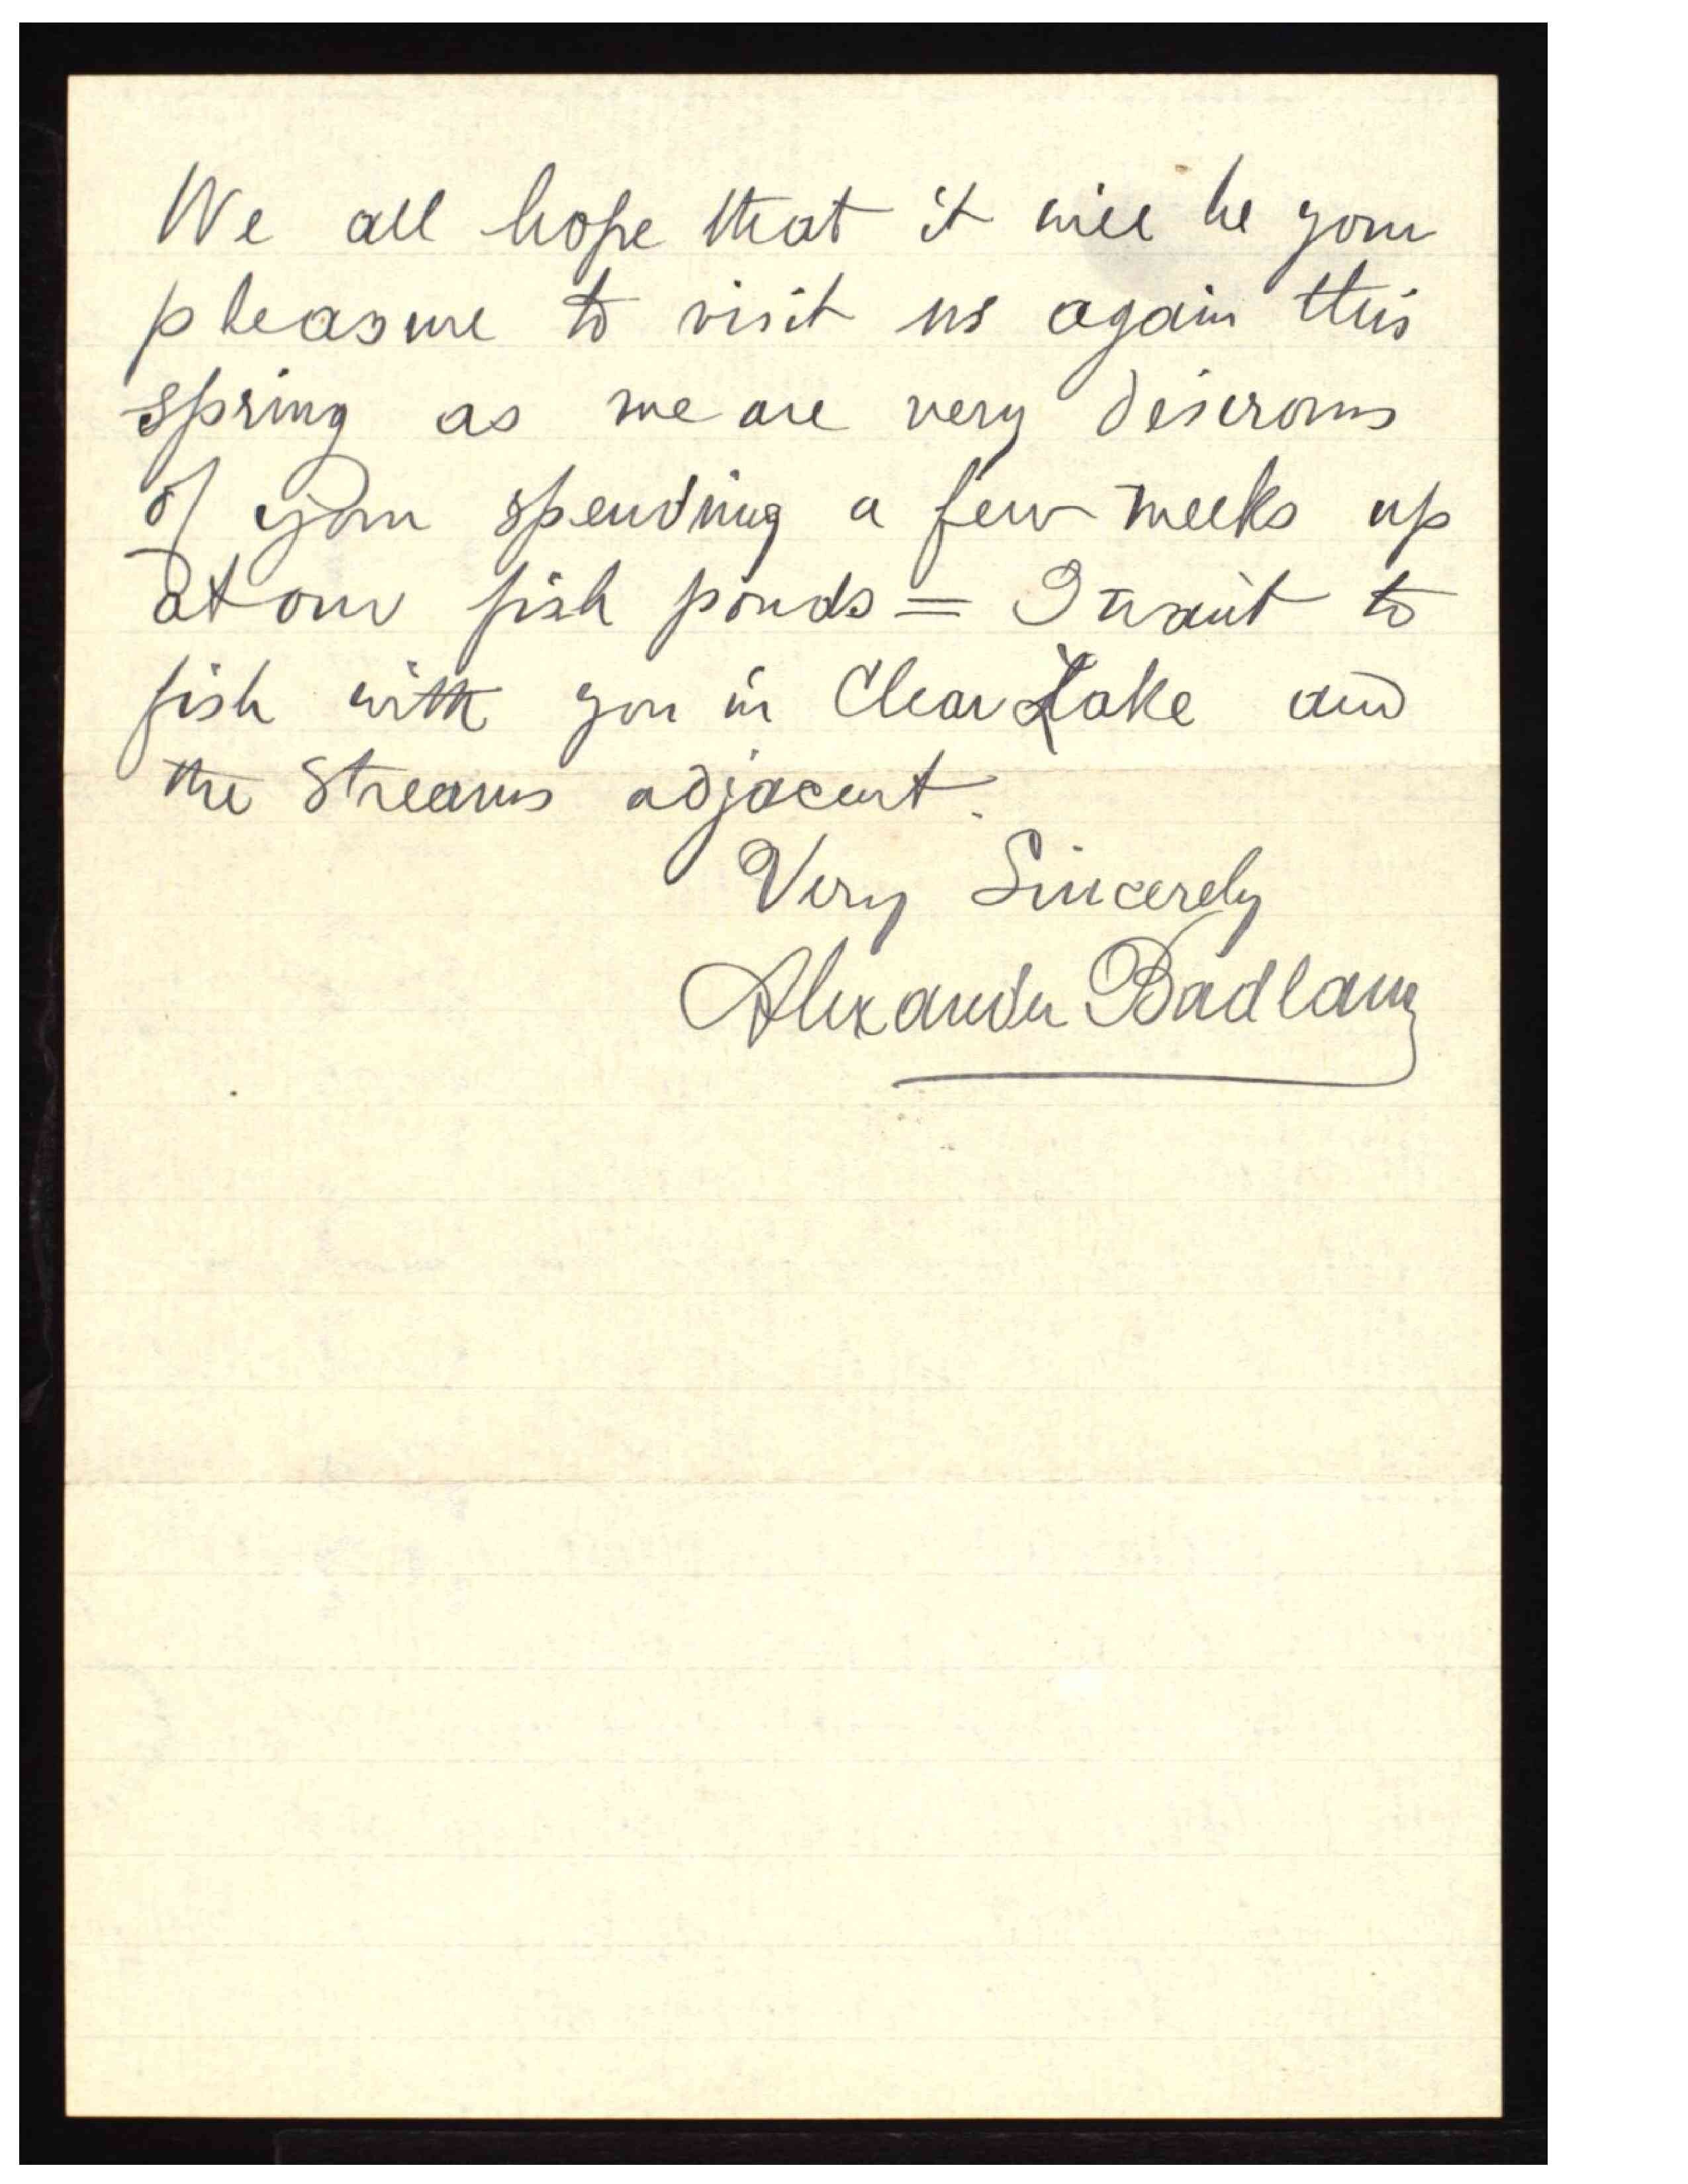 We all hope that it will be your
pleasure to visit us again this
spring as we are very desirous
of your spending a few weeks up
at our fish ponds = I want to
fish with you in Clear Lake and
the Streams adjacent.
Very Sincerely
Alexander Badlam